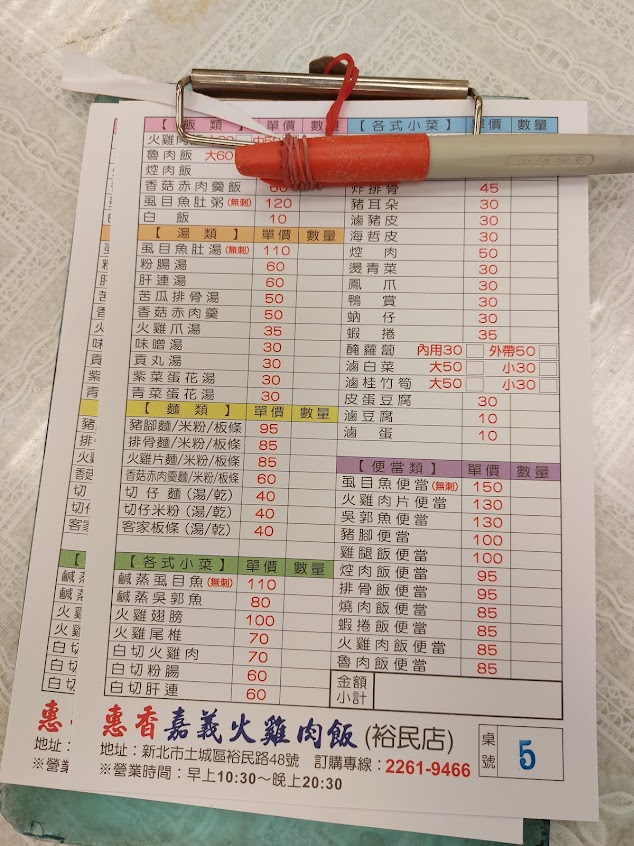 【飯類】 單價 數量
火雞肉飯
魯肉飯 大60
焢肉飯
香菇赤肉羹飯 60
虱目魚肚粥(無刺) 120
白飯 10
【湯類】 單價 數量
虱目魚肚湯(無刺) 110
粉腸湯 60
肝連湯 60
苦瓜排骨湯 50
香菇赤肉羹 50
火雞爪湯 35
味噌湯 30
貢丸湯 30
紫菜蛋花湯 30
青菜蛋花湯 30
【麵類】 單價 數量
豬腳麵/米粉/板條 95
排骨麵/米粉/板條 85
火雞片麵/米粉/板條 85
香菇赤肉羹麵/米粉/板條 60
切仔麵(湯/乾) 40
切仔米粉(湯/乾) 40
客家板條(湯/乾) 40
【各式小菜】 單價 數量
鹹蒸虱目魚(無刺) 110
鹹蒸吳郭魚 80
火雞翅膀 100
火雞尾椎 70
白切火雞肉 70
白切粉腸 60
白切肝連 60
【各式小菜】 單價 數量
炸排骨 45
豬耳朵 30
滷豬皮 30
海哲皮 30
焢肉 50
燙青菜 30
鳳爪 30
鴨賞 30
蚋仔 30
蝦捲 35
醃蘿蔔 內用30 外帶50
滷白菜 大50 小30
滷桂竹筍 大50 小30
皮蛋豆腐 30
滷豆腐 10
滷蛋 10
【便當類】 單價 數量
虱目魚便當(無刺) 150
火雞肉片便當 130
吳郭魚便當 130
豬腳便當 100
雞腿飯便當 100
焢肉飯便當 95
排骨飯便當 95
燒肉飯便當 85
蝦捲飯便當 85
火雞肉飯便當 85
魯肉飯便當 85
金額
小計
惠香嘉義火雞肉飯(裕民店)
地址：新北市土城區裕民路48號 訂購專線：2261-9466
※營業時間：早上10:30～晚上20:30
桌號 5